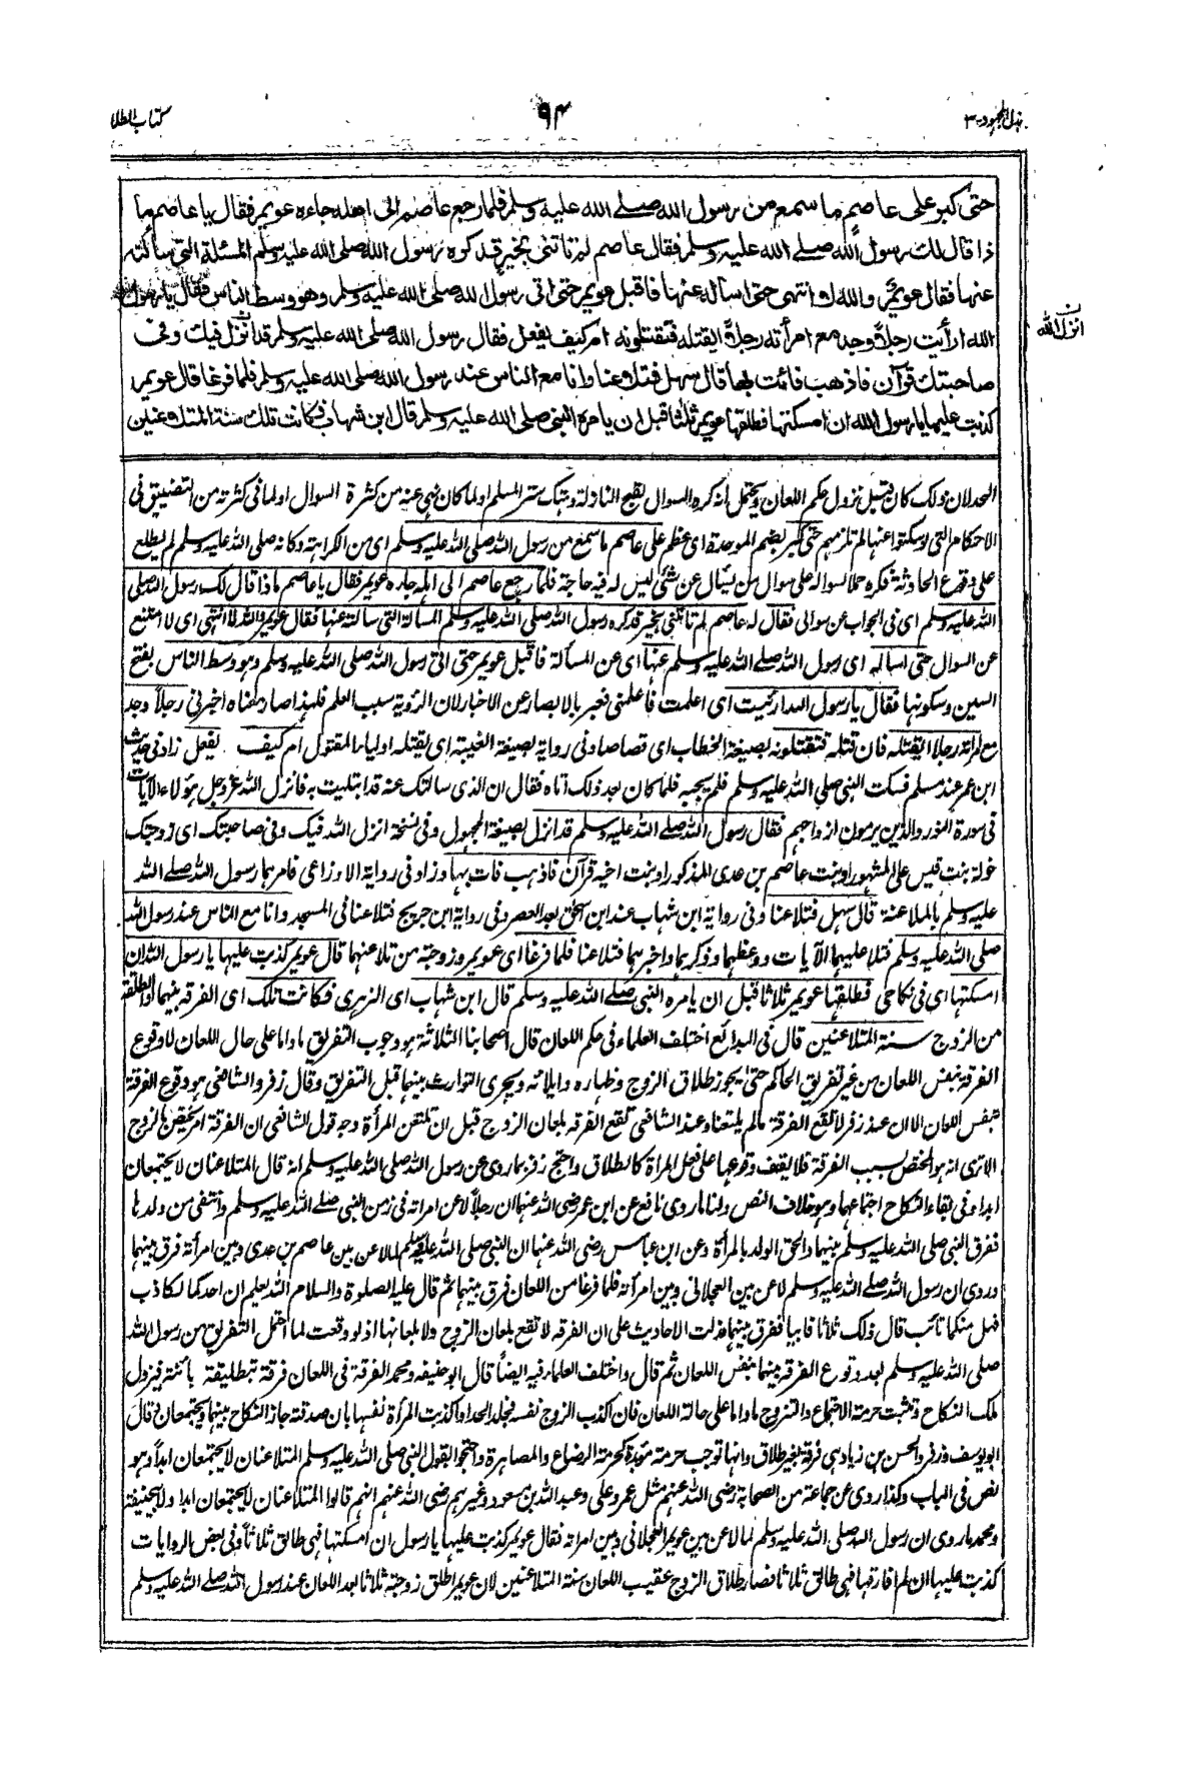 بذل المجهود-٣
٩۴
كتاب الطلا
حتى كبر على عاصم ما سمع من رسول الله صلے الله عليه وسلم فلما رجع عاصم الى اهله جاءه عويمر فقال يا عاصم ما
ذا قال لك رسول الله صلے الله عليه وسلم فقال عاصم لم تاتنى بخير قد كره رسول الله صلى الله عليه وسلم المسئلة التى سألته
عنها فقال عويمر والله لا انتهى حتى اسأله عنها فاقبل عويمر حتى اتى رسول الله صلى الله عليه وسلم وهو وسط الناس فقال يا رسول
الله ارأيت رجلاً وجد مع امرأته رجلاً ايقتله فتقتلونه ام كيف يفعل فقال رسول الله صلى الله عليه وسلم قد انزل فيك وفى
صاحبتك قرآن فاذهب فائت بها قال سهل فتلاعنا وانا مع الناس عند رسول الله صلى الله عليه وسلم فلما فرغا قال عويمر
كذبت عليها يا رسول الله ان امسكتها فطلقها عويمر ثلثا قبل ان يامره النبى صلى الله عليه وسلم قال ابن شهاب فكانت تلك سنة المتلاعنين
ن
انزل الله
لان ذلك كان قبل نزول حكم اللعان ويحتمل انه كره السوال لقبح النازلة وهتك ستر المسلم او لما كان نهى عنه من كثرة السوال او لما فى كثرته من التضييق فى
الاحكام التى لو سكتوا عنها لم تلزمهم حتى كبر بضم الموحدة اى عظم على عاصم ما سمع من رسول الله صلى الله عليه وسلم اى من الكراهة وكانه صلى الله عليه وسلم لم يطلع
على وقوع الحادثة فكره حملا لسواله على سوال من يسال عن شئ ليس له فيه حاجة فلما رجع عاصم الى اهله جاءه عويمر فقال يا عاصم ماذا قال لك رسول الله صلى
الله عليه وسلم اى فى الجواب عن سوالى فقال له عاصم لم تاتنى بخير قد كره رسول الله صلى الله عليه وسلم المسالة التى سالته عنها فقال عويمر والله لا انتهى اى لا امتنع
عن السوال حتى اساله اى رسول الله صلے الله عليه وسلم عنها اى عن المسألة فاقبل عويمر حتى اتى رسول الله صلى الله عليه وسلم وهو وسط الناس بفتح
السين وسكونها فقال يا رسول الله ارئيت اى اعلمت فاعلمنى فعبر بالابصار عن الاخبار لان الرؤية سبب العلم فلهذا صار معناه اخبرنى رجلاً وجد
مع امراته رجلا ايقتله فان قتله فتقتلونه بصيغة الخطاب اى قصاصا وفى رواية بصيغة الغيبة اى يقتله اولياء المقتول ام كيف يفعل زاد فى حديث
ابن عمر عند مسلم فسكت النبى صلى الله عليه وسلم فلم يجبه فلما كان بعد ذلك اتاه فقال ان الذى سالتك عنه قد ابتليت به فانزل الله عز وجل هؤلاء الآيات
فى سورة النور والذين يرمون ازواجهم فقال رسول الله صلے الله عليه وسلم قد انزل بصيغة المجهول وفى نسخة انزل الله فيك وفى صاحبتك اى زوجتك
خولة بنت قيس على المشهور او بنت عاصم بن عدى المذكور او بنت اخيه قرآن فاذهب فات بها وزاد فى رواية الاوزاعى فامرهما رسول الله صلے الله
عليه وسلم بالملاعنة قال سهل فتلاعنا وفى رواية ابن شهاب عند ابن اسحق بعد العصر وفى رواية ابن جريج فتلاعنا فى المسجد وانا مع الناس عند رسول الله
صلى الله عليه وسلم فتلا عليهما الآيات ووعظهما وذكرهما واخبرهما فتلاعنا فلما فرغا اى عويمر وزوجته من تلاعنهما قال عويمر كذبت عليها يا رسول الله ان
امسكتها اى فى نكاحى فطلقها عويمر ثلاثا قبل ان يامره النبى صلے الله عليه وسلم قال ابن شهاب اى الزهرى فكانت تلك اى الفرقة بينهما او الطلقة
من الزوج سنة المتلاعنين قال فى البدائع اختلف العلماء فى حكم اللعان قال اصحابنا الثلاثة هو وجوب التفريق ما داما على حال اللعان لا وقوع
الفرقة بنفس اللعان من غير تفريق الحاكم حتى يجوز طلاق الزوج وظهاره وايلائه ويجرى التوارث بينهما قبل التفريق وقال زفر والشافعى هو وقوع الفرقة
بنفس اللعان الا ان عند زفر لا تقع الفرقة مالم يلتعنا وعند الشافعى تقع الفرقة بلعان الزوج قبل ان تلتعن المرأة وجه قول الشافعى ان الفرقة امر يختص بالزوج
الا ترى انه هو المختص بسبب الفرقة فلا يقف وقوعها على فعل المراة كالطلاق واحتج زفر بما روى عن رسول الله صلى الله عليه وسلم انه قال المتلاعنان لا يجتمعان
ابدا وفى بقاء النكاح اجتماعهما وهو خلاف النص ولنا ما روى نافع عن ابن عمر رضى الله عنهما ان رجلاً لاعن امراته فى زمن النبى صلے الله عليه وسلم وانتفى من ولدها
ففرق النبى صلى الله عليه وسلم بينهما والحق الولد بالمرأة وعن ابن عباس رضى الله عنهما ان النبى صلى الله عليه وسلم لما لاعن بين عاصم بن عدى وبين امرأته فرق بينهما
وروى ان رسول الله صلے الله عليه وسلم لاعن بين العجلانى وبين امرأته فلما فرغا من اللعان فرق بينهما ثم قال عليه الصلوة والسلام الله يعلم ان احدكما لكاذب
فهل منكما تائب قال ذلك ثلاثا فابيا ففرق بينهما فدلت الاحاديث على ان الفرقة لا تقع بلعان الزوج ولا بلعانها اذ لو وقعت لما احتمل التفريق من رسول الله
صلى الله عليه وسلم بعد وقوع الفرقة بينهما بنفس اللعان ثم قال واختلف العلماء فيه ايضًا قال ابو حنيفه ومحمد الفرقة فى اللعان فرقة بتطليقة بائنة فيزول
ملك النكاح وتثبت حرمة الاجتماع والتزوج ما داما على حالة اللعان فان اكذب الزوج نفسه فجلد الحد او اكذبت المرأة نفسها بان صدقته جاز النكاح بينهما ويجتمعان وقال
ابو يوسف وزفر والحسن بن زياد هى فرقة بغير طلاق وانها توجب حرمة مؤبدة كحرمة الرضاع والمصاهرة واحتجوا بقول النبى صلى الله عليه وسلم المتلاعنان لا يجتمعان ابداً وهو
نص فى الباب وكذا روى عن جماعة من الصحابة رضى الله عنهم مثل عمر وعلى وعبد الله بن مسعود وغيرهم رضى الله عنهم انهم قالوا المتلاعنان لا يجتمعان ابدا ولابى حنيفة
ومحمد ما روى ان رسول الله صلى الله عليه وسلم لما لاعن بين عويمر العجلانى وبين امراته فقال عويمر كذبت عليها يا رسول ان امسكتها فهى طالق ثلاثاً وفى بعض الروايات
كذبت عليها ان لم افارقها فهى طالق ثلاثا فصار طلاق الزوج عقيب اللعان سنة المتلاعنين لان عويمر اطلق زوجته ثلاثا بعد اللعان عند رسول الله صلے الله عليه وسلم